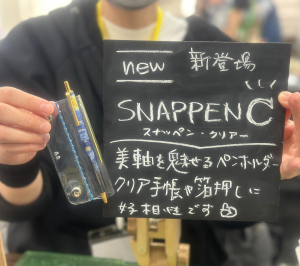 new 新登場
SNAPPEN C
スナッペン・クリアー
美軸を魅せるペンホルダー
クリア手帳や箔押しに
好相性です